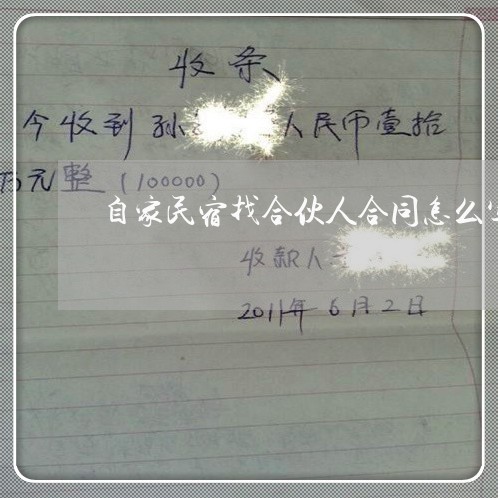 收条
今收到孙 人民币壹拾
万元整（100000）
自家民宿找合伙人合同怎么
收款人
2011年6月2日